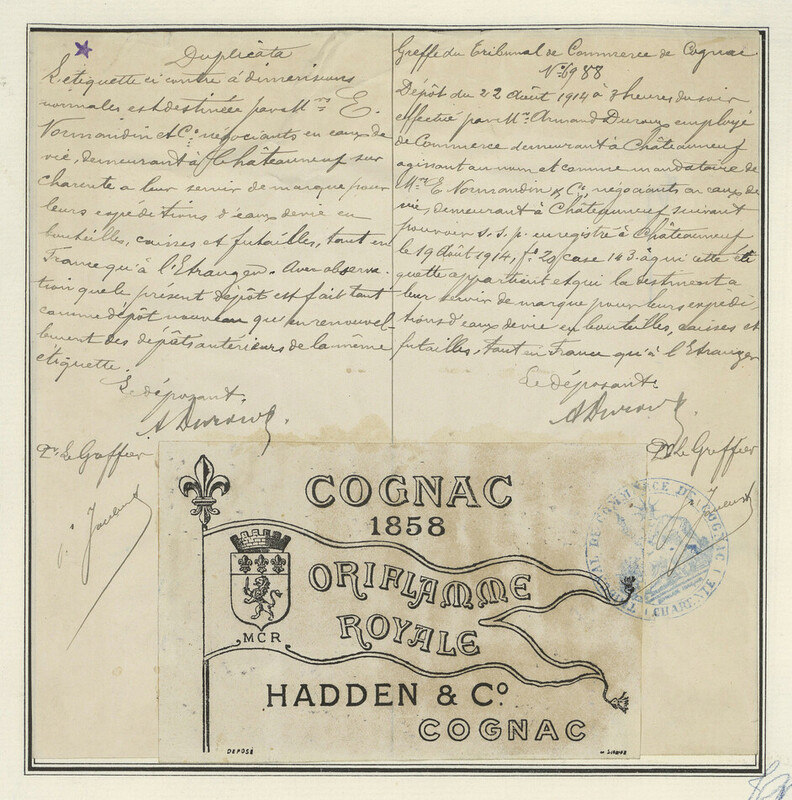 Duplicata
L'étiquette ci contre à dimensions
normales est destinée par M.rs E.
Normandin et Cie négociants en eaux de
vie, demeurant à Châteauneuf sur
Charente a leur servir de marque pour
leurs expéditions d'eaux de vie en
bouteilles, caisses et futailles, tant en
France qu'à l'Etranger. Avec observa-
tion que le présent dépôt est fait tant
comme dépôt nouveau qu'en renouvel-
lement des dépôts antérieurs de la même
étiquette.
Le déposant.
Pr Le Greffier
Greffe du Tribunal de Commerce de Cognac
No 6988
Dépôt du 22 Août 1914 à 3 heures du soir
effectué par Mr Armand Duroux employé
de Commerce demeurant à Châteauneuf
agissant au nom et comme mandataire de
M.rs E Normandin & Cie, négociants en eaux de
vie, demeurant à Châteauneuf, suivant
pouvoir s.s.p. enregistré à Châteauneuf
le 19 Août 1914, fo 20 case 143 à qui cette éti
quette appartient et qui la destinent à
leur servir de marque pour leurs expédi-
tions d'eaux de vie en bouteilles, caisses et
futailles, tant en France qu'à l'Etranger
Le déposant.
Pr Le Greffier
TRIBUNAL DE COMMERCE DE COGNAC
(CHARENTE)
COGNAC
1858
ORIFLAMME
ROYALE
MCR
HADDEN & Co
COGNAC
DEPOSÉ